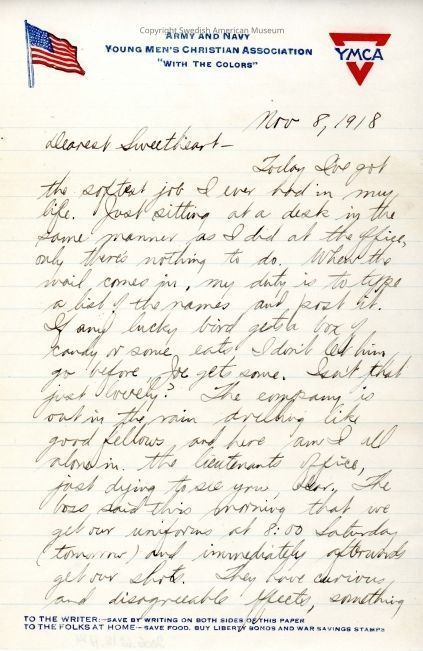 Copyright Swedish American Museum
ARMY AND NAVY
YOUNG MEN'S CHRISTIAN ASSOCIATION
"WITH THE COLORS"
YMCA
Nov 8, 1918
Dearest Sweetheart –
Today I've got
the softest job I ever had in my
life. Just sitting at a desk in the
same manner as I did at the office,
only there's nothing to do. When the
mail comes in, my duty is to type
a list of the names and post it.
If any lucky bird gets a box of
candy or some eats, I don't let him
go before I've gets some. Isn't that
just lovely? The company is
out in the rain drilling like
good fellows and here am I all
alone in the lieutenants office,
just dying to see you dear. The
boss said this morning that we
get our uniforms at 8:00 Saturday
(tomorrow) and immediately afterwards
get our shots. They have curious
and disagreeable effects, something
TO THE WRITER:— SAVE BY WRITING ON BOTH SIDES OF THIS PAPER
TO THE FOLKS AT HOME— SAVE FOOD, BUY LIBERTY BONDS AND WAR SAVINGS STAMPS